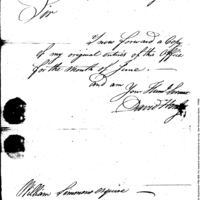 Sir
I now forward a Copy
of my original entries of this Office
for the month of June
and am
Your Humb Servt
David
William Simmons esquire